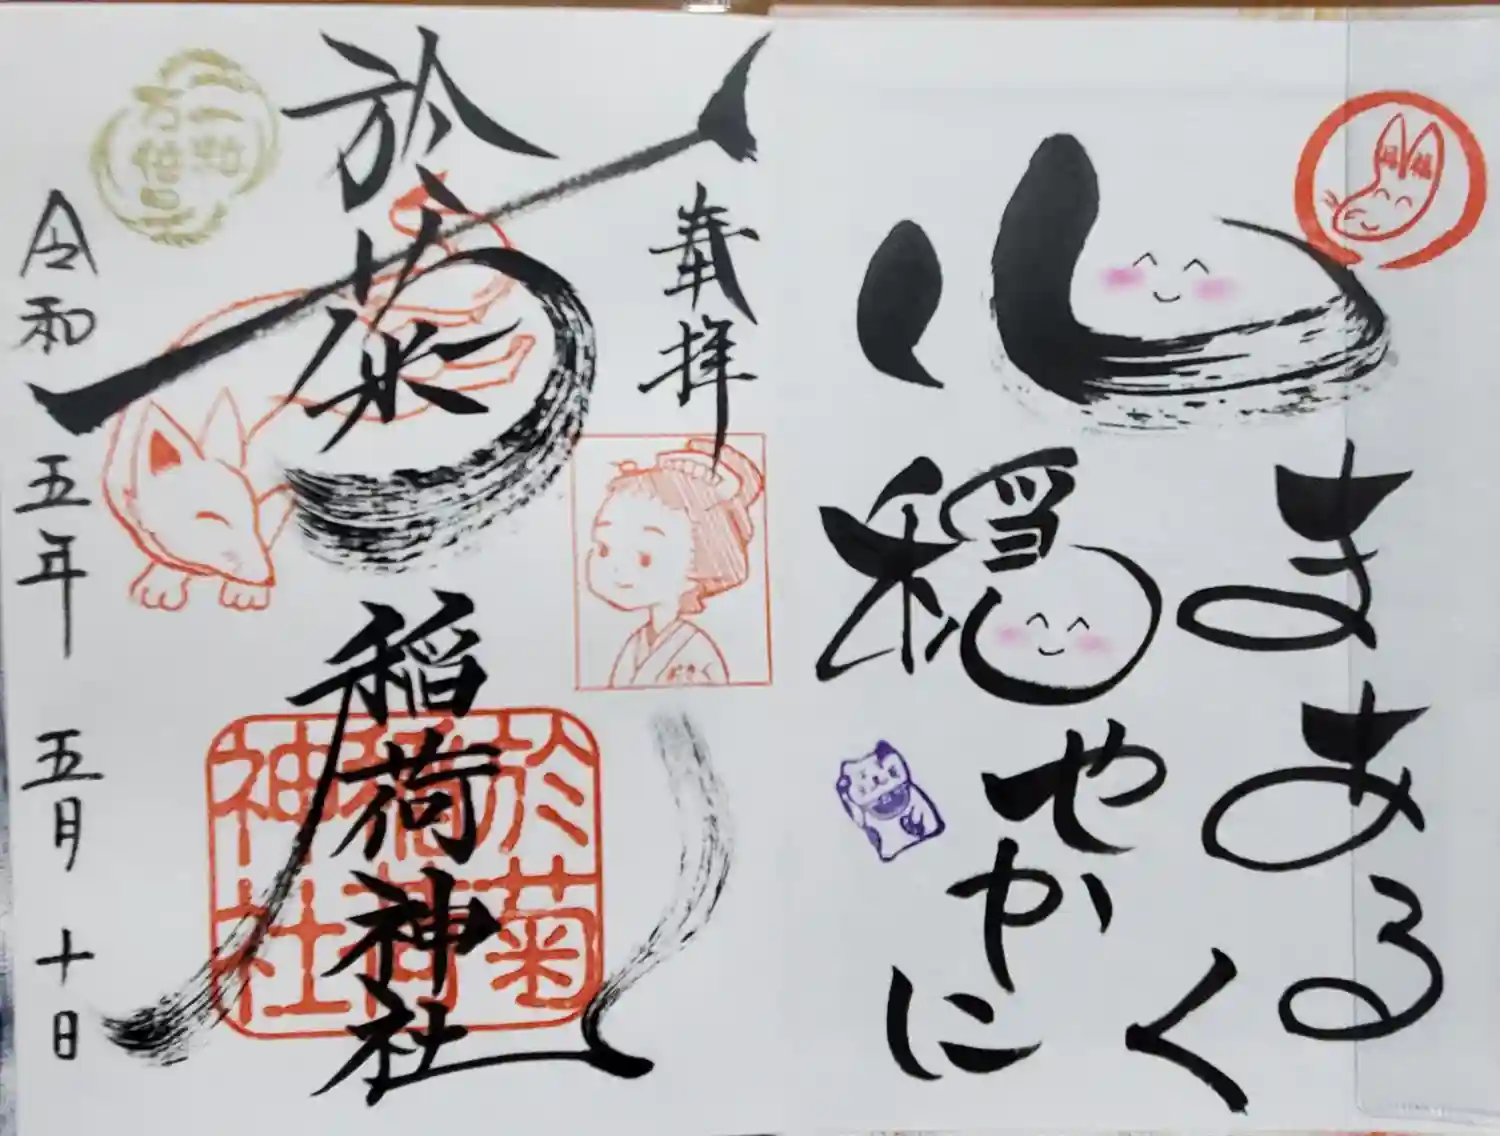 まあるく
心
穏やかに
奉拝
おきく
於菊稲荷神社
於菊
稲荷
神社
一粒
万倍日
令和五年五月十日